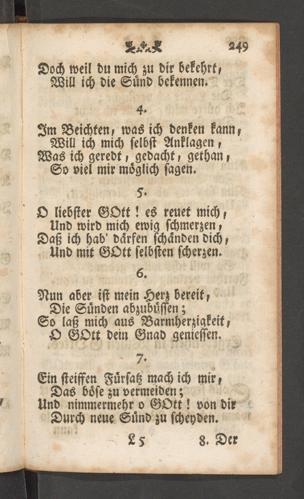 249
Doch weil du mich zu dir bekehrt,
Will ich die Sünd bekennen.
4.
Im Beichten, was ich denken kann,
Will ich mich selbst Anklagen,
Was ich geredt, gedacht, gethan,
So viel mir möglich sagen.
5.
O liebster GOtt! es reuet mich,
Und wird mich ewig schmerzen,
Daß ich hab' därfen schänden dich,
Und mit GOtt selbsten scherzen.
6.
Nun aber ist mein Herz bereit,
Die Sünden abzubüssen;
So laß mich aus Barmherzigkeit,
O GOtt dein Gnad geniessen.
7.
Ein steiffen Fürsatz mach ich mir,
Das böse zu vermeiden;
Und nimmermehr o GOtt! von dir
Durch neue Sünd zu scheyden.
L 5 8. Der